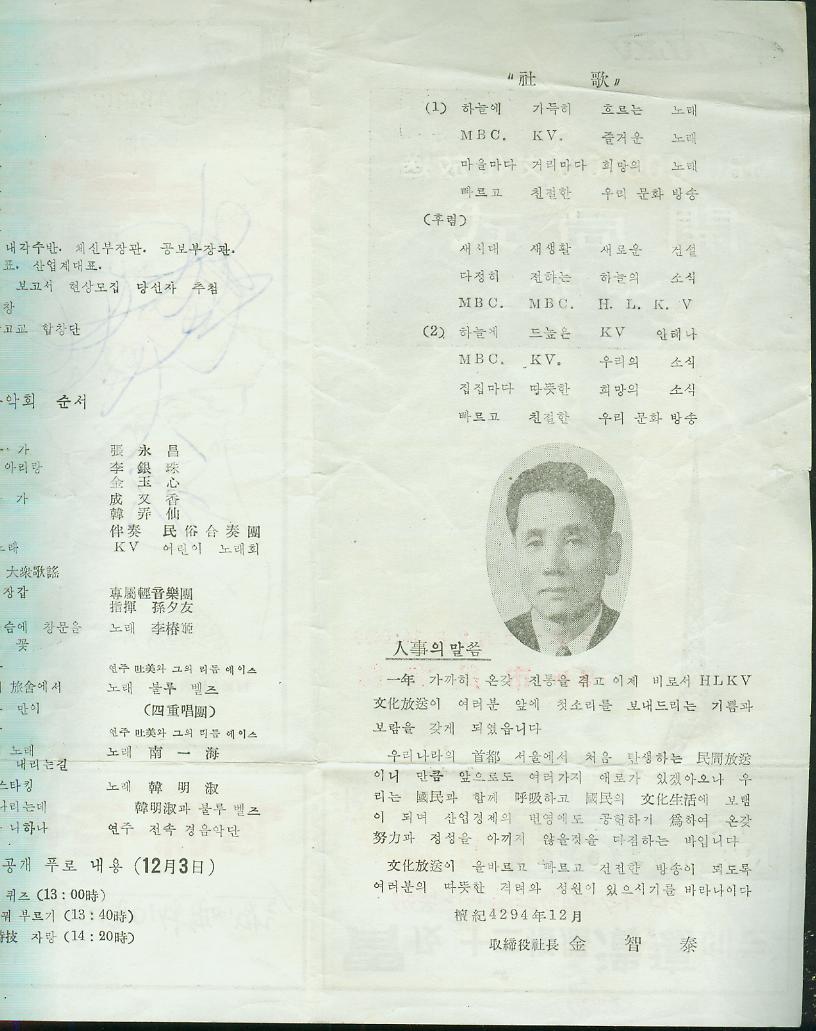 내각수반. 체신부장관. 공보부장관.
표. 산업계대표.
보고서 현상모집 당선자 추첨
창
고교 합창단
악회 순서
가 張永昌
아리랑 李銀珠
金玉心
가 成又香
韓弄仙
伴奏 民俗合奏團
노래 KV 어린이 노래회
大衆歌謠
장갑 專屬輕音樂團
指揮 孫夕友
슴에 창문을 노래 李椿
꽃
연주 吐美와 그의 리듬 에이스
旅舍에서 노래 블루 벨즈
만이 (四重唱團)
연주 吐美와 그의 리듬 에이스
노래 노래 南一海
내리는길
스타킹 노래 韓明淑
나리는데 韓明淑과 블루 벨즈
니하나 연주 전속 경음악단
공개 푸로 내용 (12月3日)
퀴즈 (13:00時)
부르기 (13:40時)
特技 자랑 (14:20時)
“社 歌”
(1) 하늘에 가득히 흐르는 노래
MBC. KV. 즐거운 노래
마을마다 거리마다 희망의 노래
빠르고 친절한 우리 문화 방송
(후렴)
새시대 새생활 새로운 건설
다정히 전하는 하늘의 소식
MBC. MBC. H. L. K. V
(2) 하늘에 드높은 KV 안테나
MBC. KV. 우리의 소식
집집마다 따뜻한 희망의 소식
빠르고 친절한 우리 문화 방송
人事의 말씀
一年 가까히 온갖 진통을 겪고 이제 비로서 HLKV
文化放送이 여러분 앞에 첫소리를 보내드리는 기쁨과
보람을 갖게 되였읍니다
우리나라의 首都 서울에서 처음 탄생하는 民間放送
이니 만큼 앞으로도 여러가지 애로가 있겠아오나 우
리는 國民과 함께 呼吸하고 國民의 文化生活에 보탬
이 되며 산업경제의 번영에도 공헌하기 爲하여 온갖
努力과 정성을 아끼지 않을것을 다짐하는 바입니다
文化放送이 올바르고 빠르고 건전한 방송이 되도록
여러분의 따뜻한 격려와 성원이 있으시기를 바라나이다
檀紀4294年12月
取締役社長 金智泰